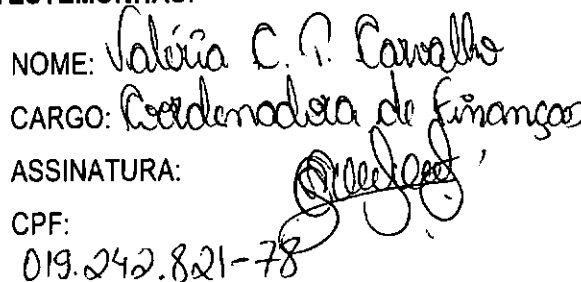 TESTEMUNHAS:
NOME: Valéria C. P. Carvalho
CARGO: Coordenadora de Finanças
ASSINATURA:
CPF:
019.242.821-78